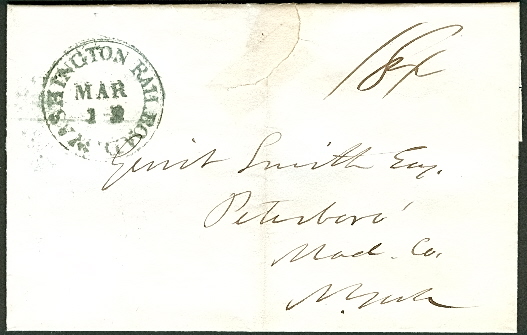 WASHINGTON RAILROAD.
MAR
Gerrit Smith Esq.
Peterboro'
Mad. Co.
N. York